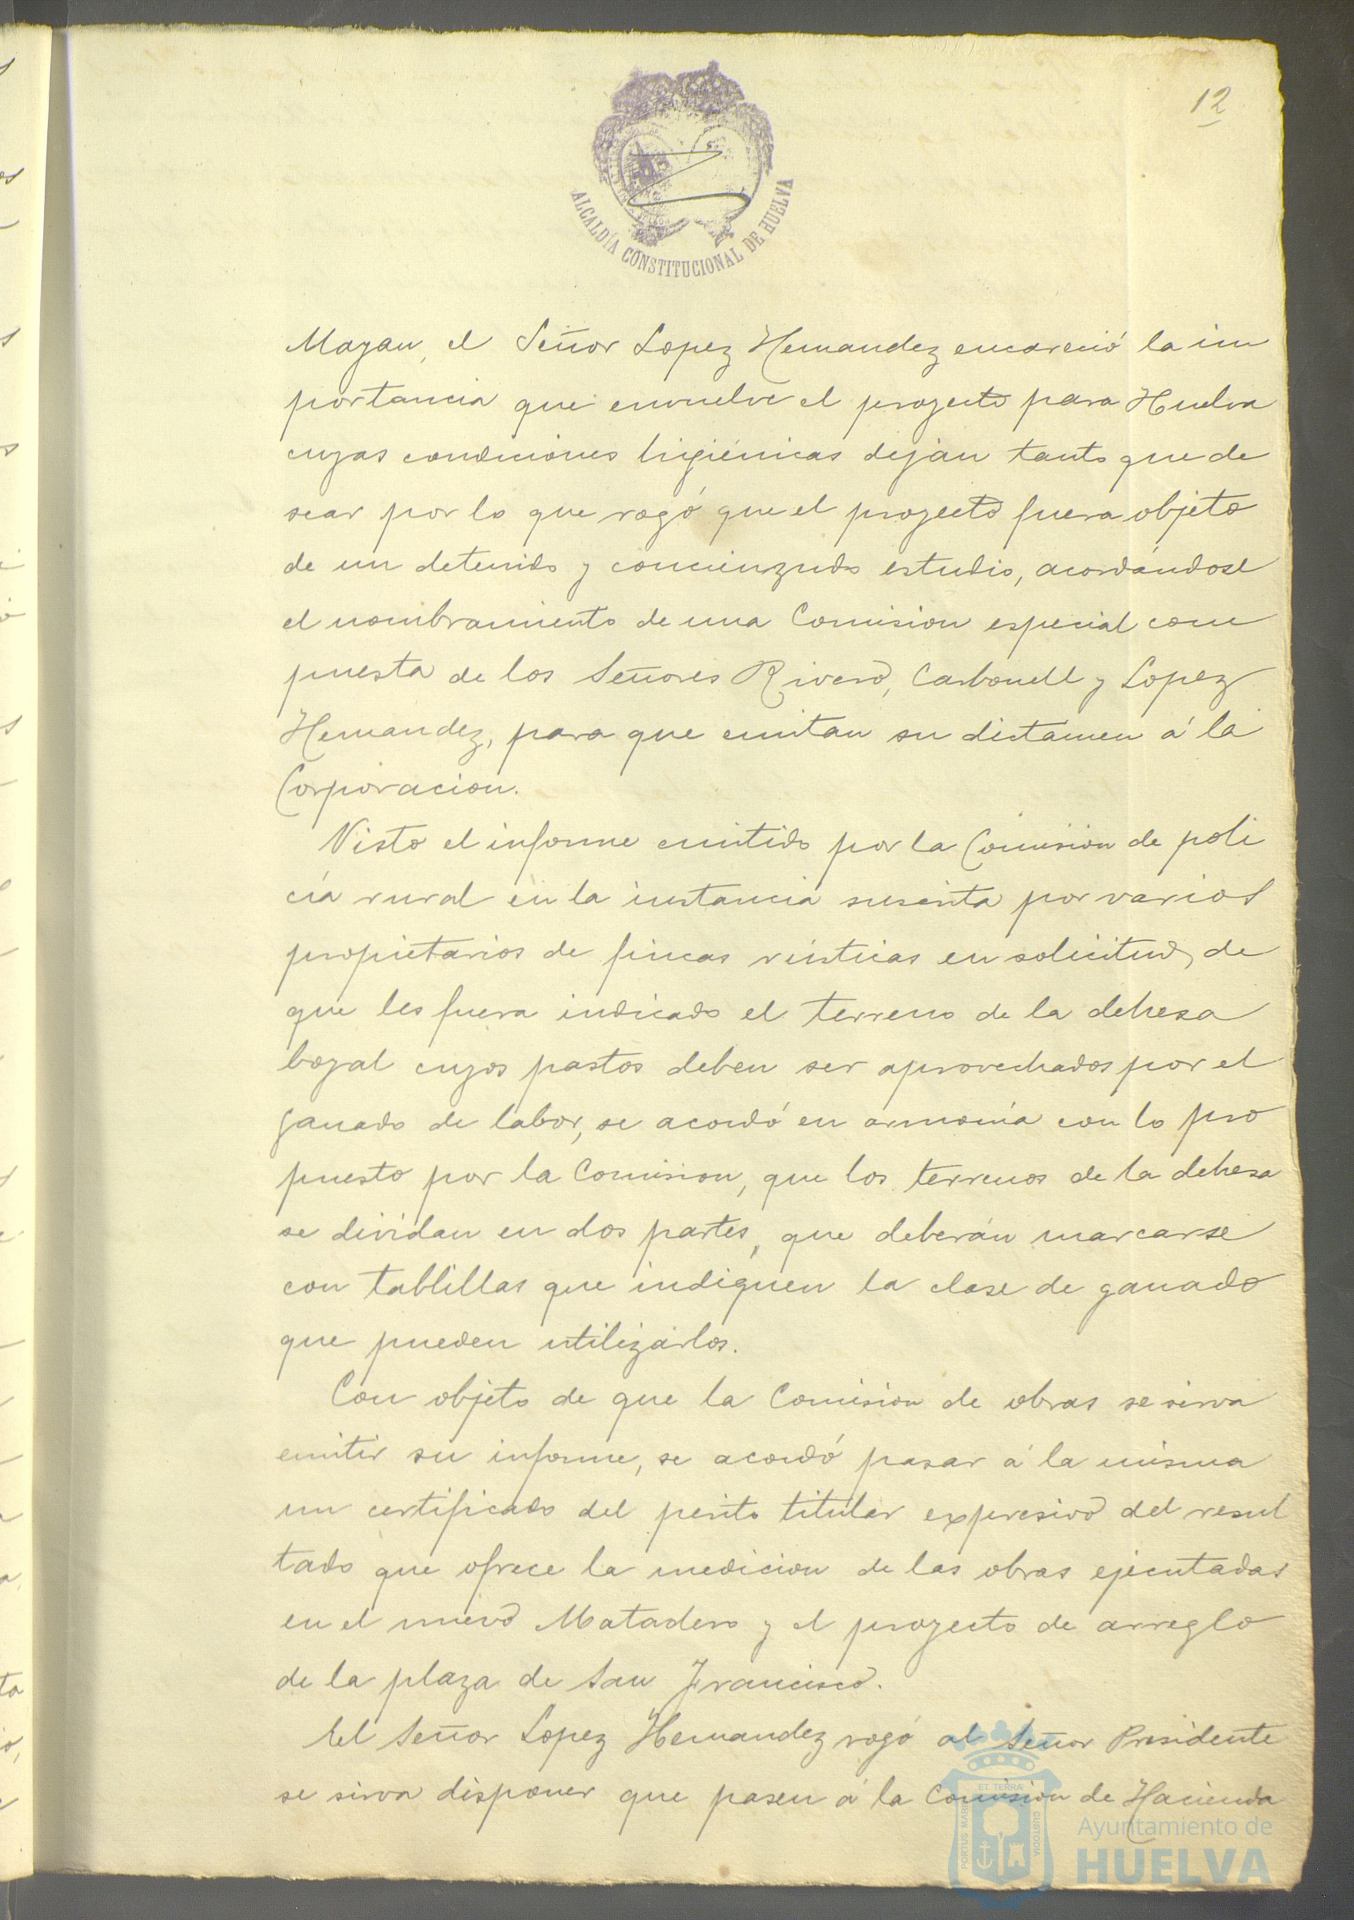 12
ALCALDÍA CONSTITUCIONAL DE HUELVA
Mayan, el Señor Lopez Hernandez encareció la im
portancia que envuelve el proyecto para Huelva
cuyas condiciones higiénicas dejan tanto que de
sear por lo que rogó que el proyecto fuera objeto
de un detenido y concienzudo estudio, acordándose
el nombramiento de una Comision especial com
puesta de los Señores Rivero, Carbonell y Lopez
Hernandez, para que emitan su dictamen á la
Corporacion.
Visto el informe emitido por la Comisión de poli
cía rural en la instancia suscrita por varios
propietarios de fincas rústicas en solicitud de
que les fuera indicado el terreno de la dehesa
boyal cuyos pastos deben ser aprovechados por el
ganado de labor, se acordó en armonía con lo pro
puesto por la Comision, que los terrenos de la dehesa
se dividan en dos partes, que deberán marcarse
con tablillas que indiquen la clase de ganado
que pueden utilizarlos.
Con objeto de que la Comision de obras se sirva
emitir su informe, se acordó pasar á la misma
un certificado del perito titular expresivo del resul
tado que ofrece la medicion de las obras ejecutadas
en el nuevo Matadero y el proyecto de arreglo
de la plaza de San Francisco.
El Señor Lopez Hernandez rogó al Señor Presidente
se sirva disponer que pasen á la Comision de Hacienda
PORTUS MARIS ET TERRAE CUSTODIA
Ayuntamiento de
HUELVA